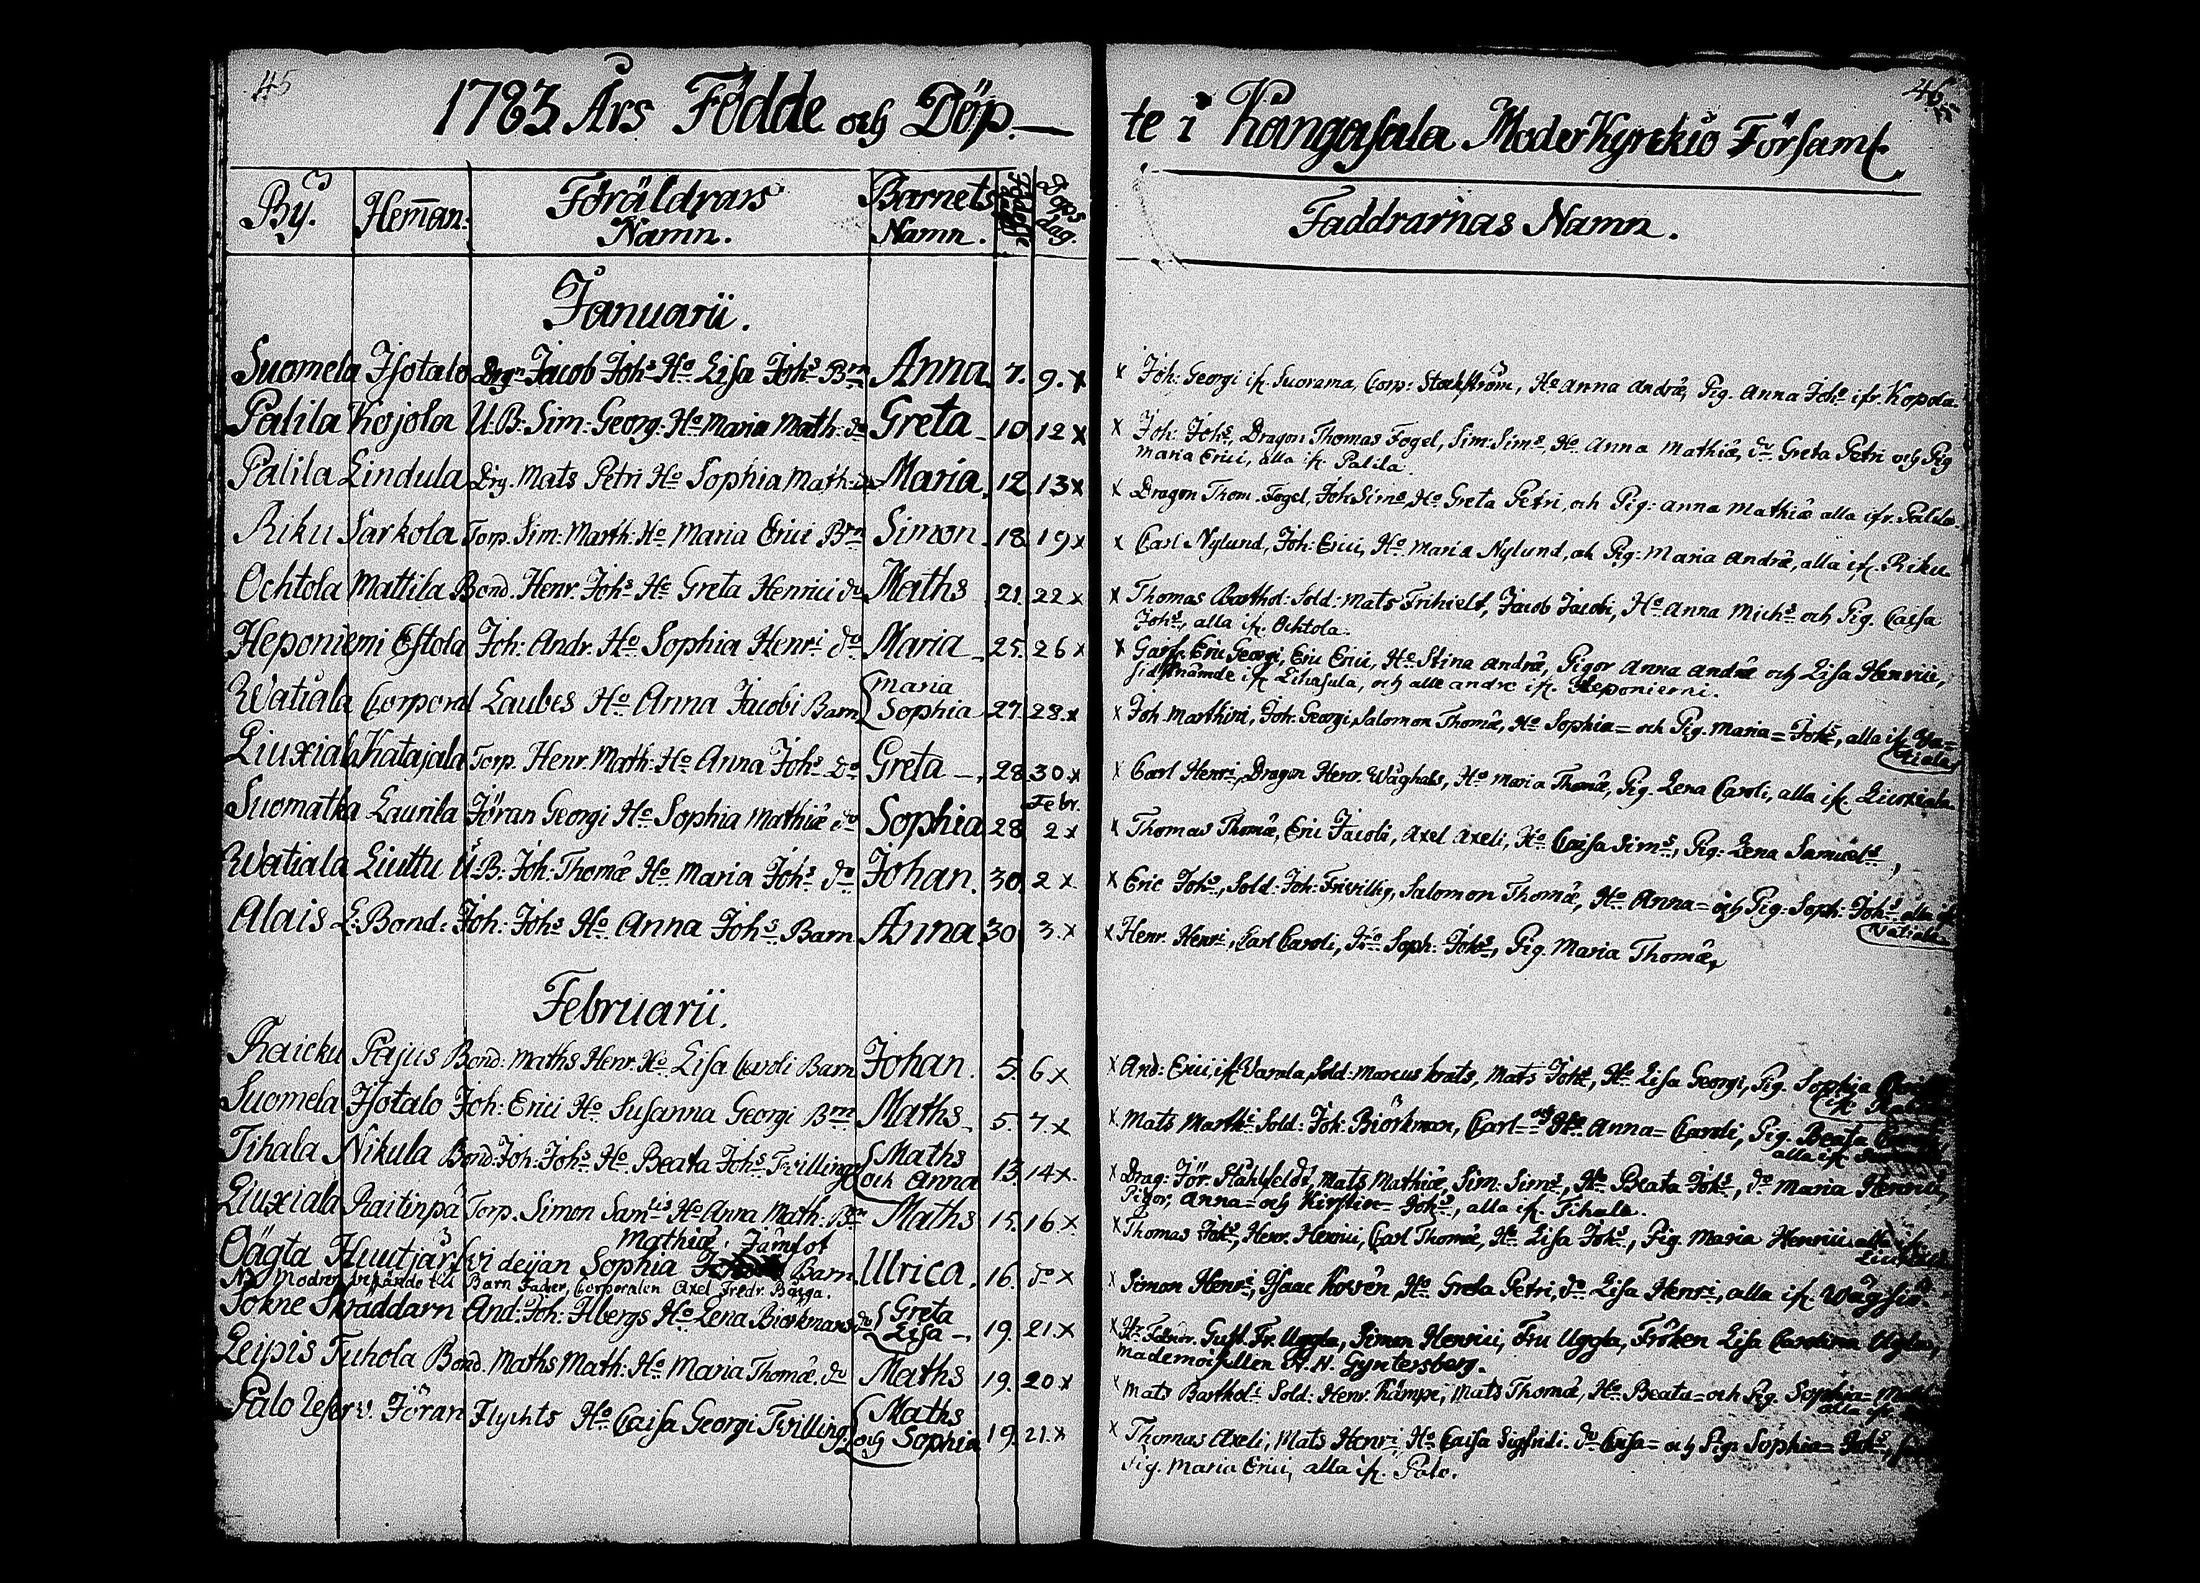 45
1783 Års Födde och Döp
By. Heman. Föräldrars Namn. Barnets Namn. Döps dag.
Januarii.
Suomela Isotalo Drgn Jacob Johs Ho Lisa Johs Brn Anna 7. 9. x
Palila Kojola U.B. Sim: Georg. Ho Maria Math: do Greta 10 12 x
Palila Lindula Drg. Mats Petri Ho Sophia Math: do Maria. 12 13 x
Riku Sarkola Torp. Sim: Marth: Ho Maria Erici Brn Simon 18 19 x
Ochtola Mattila Bond. Henr. Johs Ho Greta Henrici do Maths 21. 22 x
Heponiemi Estola Joh: Andr. Ho Sophia Henri do Maria 25. 26 x
Watiala Corporal Laubes Ho Anna Jacobi Barn { Maria Sophia 27. 28. x
Liuxiala Katajala Torp. Henr. Math: Ho Anna Johs do Greta 28 30 x
Suomatka Laurila Jöran Georgi Ho Sophia Mathiæ do Sophia 28 Febr. 2 x
Watiala Liuttu U.B. Joh: Thomæ Ho Maria Johs do Johan. 30 2 x
Alais L: Bond: Joh: Johs Ho Anna Johs Barn Anna 30 3. x
Februarii.
Raicku Pajus Bond: Maths Henr. Ho Lisa Caroli Barn Johan. 5. 6 x
Suomela Isotalo Joh: Erici Ho Susanna Georgi Brn Maths 5. 7. x
Tihala Nikula Bond. Joh: Johs Ho Beata Johs Tvillingr { Maths och Anna 13. 14 x
Liuxiala Raitinpä Torp. Simon Samlis Ho Anna Math: Brn Maths 15. 16. x
Mathiæ, Jämfot
Oägta Huutjärfvi deijan Sophia Barn. Ulrica. 16. do x
NB Modren til Barn Fader, Corporalen Axel Fredr. Bagga.
Sokne Skräddarn And. Joh: Ho Lena Biörkmans do { Greta Lisa 19. 21. x
Leipis Tuhola Bond. Maths Math: Ho Maria Thomæ. do Maths 19. 20 x
Palo Reserv. Jöran Flychts Ho Caisa Georgi Tvilling. { Maths och Sophia 19. 21. x
46
te i Kangasala ModerKyrckio Församl.
Faddrarnas Namn.
x Joh: Georgi if. Suorama, Corp: Stockström, Ho Anna Andræ, Pig. Anna Johs ifr. Kopola.
x Joh: Johs, Dragon Thomas Fogel, Sim: Sims, Ho Anna Mathiæ, do Greta Petri och Pig
Maria Erici, alla if. Palila.
x Dragon Thom. Fogel, Joh: Sims, Ho Greta Petri, och Pig: Anna Mathiæ alla ifr. Palila.
x Carl Nylund, Joh: Erici, Ho Maria Nylund, och Pig: Maria Andræ, alla if. Riku
x Thomas Barthol: Sold: Mats Frihielt, Jacob Jacobi, Ho Anna Michs och Pig. Caisa
Johs, alla if. Ochtola.
x Garf. Eric Georgi, Eric Erici, Ho Stina Andræ, Pigor Anna Andræ och Lisa Henrici,
sidstnämde if. Lihasula, och alla andre if. Heponiemi.
x Joh. Marthini, Joh: Georgi, Salomon Thomæ, Ho Sophia= och Pig. Maria= Johs, alla if. Wa=
tiala
x Carl Henri, Dragon Henr. Wåghals, Ho Maria Thomæ, Pig. Lena Caroli, alla if. Liuxiala
x Thomas Thomæ, Eric Jacobi, Axel Axeli, Ho Caisa Sims, Pig: Lena Samuels,
x Eric Johs, Sold: Joh: Frivillig, Salomon Thomæ, Ho Anna= och Pig. Soph: Johs alla if.
Watiala
x Henr. Henri, Carl Caroli, Ho Soph: Johs, Pig. Maria Thomæ,
x And: Erici if. Varala, Sold: Marcus Krats, Mats Johs, Ho Lisa Georgi, Pig. Sophia
x Mats Marthi Sold: Joh: Biörkman, Carl= och Ho Anna= Caroli, Pig. Beata
alla if.
x Drag: Jör. Stählfeldt, Mats Mathiæ, Sim: Sims, Ho Beata Johs, do Maria Henrici,
Pigor, Anna= och Kirstin= Johs, alla if. Tihala.
x Thomas Johs, Henr. Henrici, Carl Thomæ, Ho Lisa Johs, Pig. Maria Henrici alla if.
x Simon Henri, Isaac Ho Greta Petri, do Lisa Henri, alla if.
x Hr Fendr. Gust. Fr. Uggla, Simon Henrici, Fru Uggla, Fröken Lisa Carolina Uggla,
Mademoisellen Gyntersberg.
x Mats Bartholi Sold: Henr. Kämpi, Mats Thomæ, Ho Beata= och Pig. Sophia=
alla ifr.
x Thomas Axeli, Mats Henri, Ho Caisa Sigfridi. do Caisa= och Pig. Sophia= Johs,
Pig. Maria Erici, alla if. Palo.